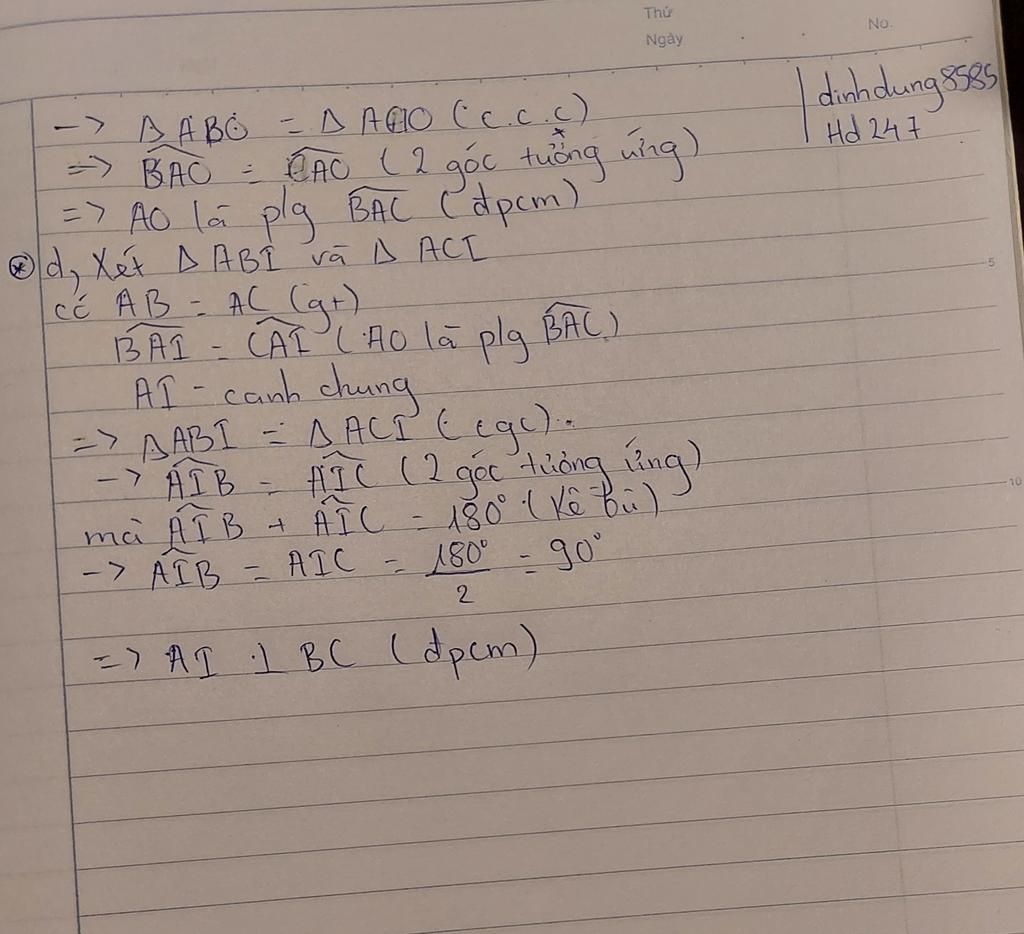 Thứ
Ngày
No.
dinhdung8585
Hd247
-> Δ ABO = Δ ACO (c.c.c)
=> BAO = CAO (2 góc tương ứng)
=> AO là plg BAC (đpcm)
* d, Xét Δ ABI và Δ ACI
có AB = AC (gt)
BAI = CAI (AO là plg BAC)
AI - canh chung
=> ΔABI = Δ ACI (cgc)
-> AIB = AIC (2 góc tương ứng)
mà AIB + AIC = 180° (kề bù)
-> AIB = AIC = 180°/2 = 90°
=> AI ⊥ BC (đpcm)
5
10